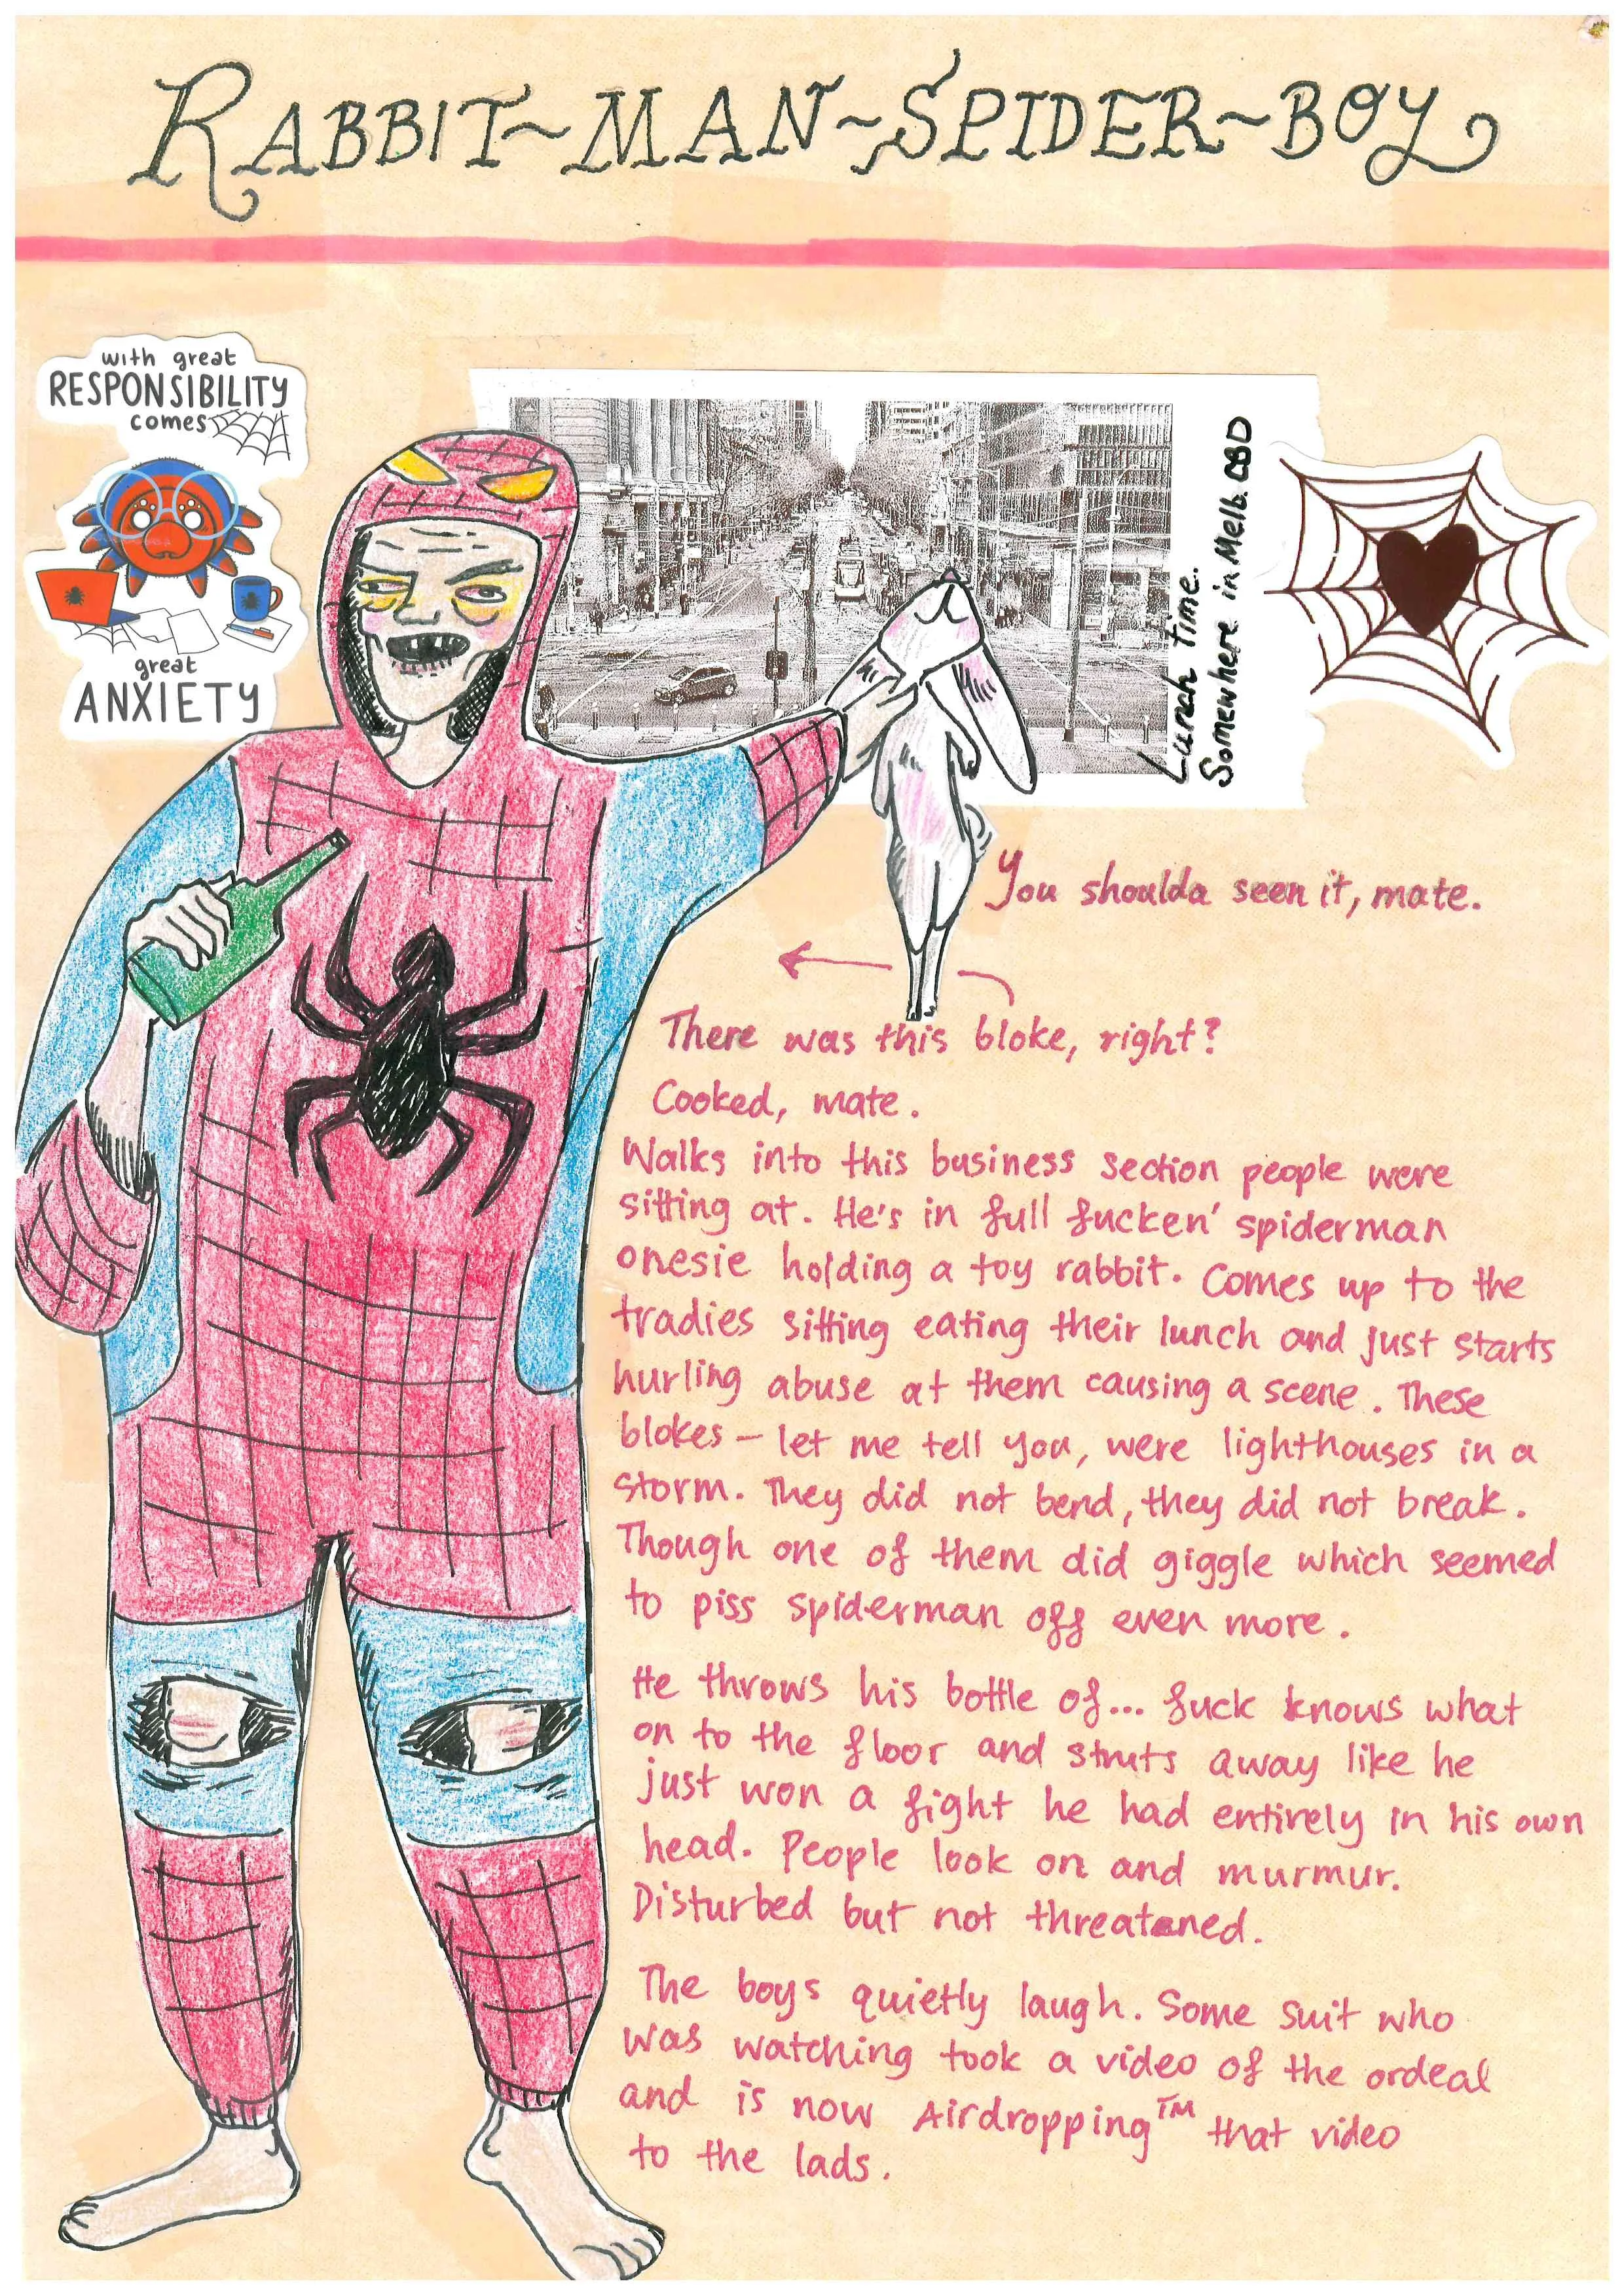 RABBIT~MAN~SPIDER~BOY
with great
RESPONSIBILITY
comes
great
ANXIETY
Lunch time.
Somewhere in Melb. CBD
You shoulda seen it, mate.
There was this bloke, right?
Cooked, mate.
Walks into this business section people were
sitting at. He's in full fucken' spiderman
onesie holding a toy rabbit. Comes up to the
tradies sitting eating their lunch and just starts
hurling abuse at them causing a scene. These
blokes – let me tell you, were lighthouses in a
storm. They did not bend, they did not break.
Though one of them did giggle which seemed
to piss spiderman off even more.
He throws his bottle of... fuck knows what
on to the floor and struts away like he
just won a fight he had entirely in his own
head. People look on and murmur.
Disturbed but not threatened.
The boys quietly laugh. Some suit who
was watching took a video of the ordeal
and is now Airdropping™ that video
to the lads.